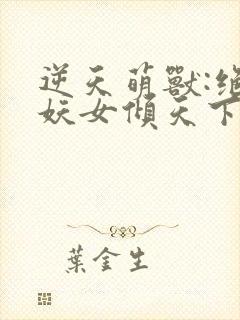 逆天萌獸:絕
妖女傾天下
葉金生